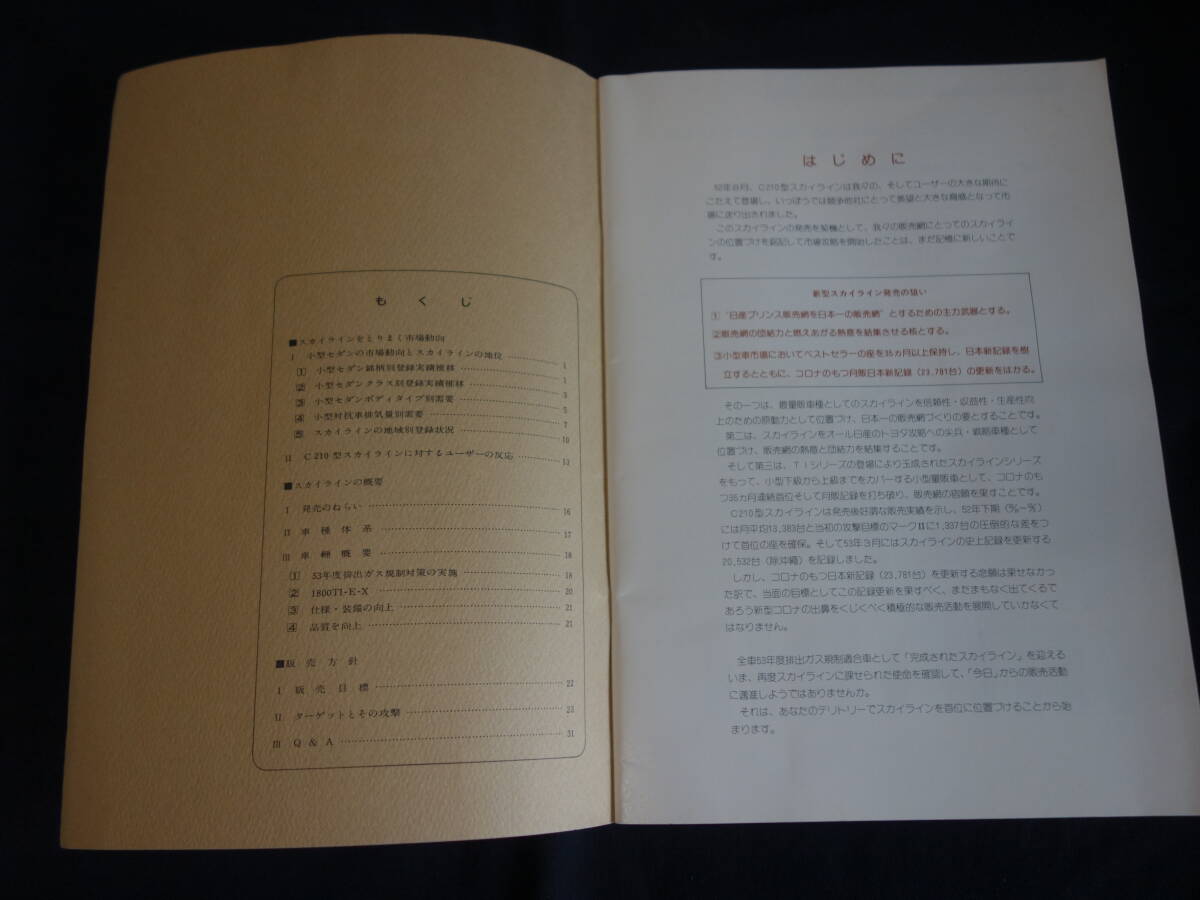 もくじ
■スカイラインをとりまく市場動向
I 小型セダンの市場動向とスカイラインの地位 1
1 小型セダン銘柄別登録実績推移 1
2 小型セダンクラス別登録実績推移 3
3 小型セダンボディタイプ別需要 5
4 小型対抗車排気量別需要 7
5 スカイラインの地域別登録状況 10
II C210型スカイラインに対するユーザーの反応 13
■スカイラインの概要
I 発売のねらい 16
II 車種体系 17
III 車輌概要 18
1 53年度排出ガス規制対策の実施 18
2 1800TI-E・X 20
3 仕様・装備の向上 21
4 品質を向上 21
■販売方針
I 販売目標 22
II ターゲットとその攻撃 23
III Q&A 31
はじめに
52年8月、C210型スカイラインは我々の、そしてユーザーの大きな期待に
こたえて登場し、いっぽうでは競争他社にとって羨望と大きな脅威となって市
場に送り出されました。
このスカイラインの発売を契機として、我々の販売網にとってのスカイライ
ンの位置づけを銘記して市場攻略を開始したことは、まだ記憶に新しいことで
す。
新型スカイライン発売の狙い
①“日産プリンス販売網を日本一の販売網”とするための主力武器とする。
②販売網の団結力と燃えあがる熱意を結集させる核とする。
③小型車市場においてベストセラーの座を35ヵ月以上保持し、日本新記録を樹
立するとともに、コロナのもつ月販日本新記録(23,781台)の更新をはかる。
その一つは、最量販車種としてのスカイラインを信頼性・収益性・生産性向
上のための原動力として位置づけ、日本一の販売網づくりの要とすることです。
第二は、スカイラインをオール日産のトヨタ攻略への尖兵・戦略車種として
位置づけ、販売網の熱意と団結力を結集することです。
そして第三は、TIシリーズの登場により玉成されたスカイラインシリーズ
をもって、小型下級から上級までをカバーする小型量販車として、コロナのも
つ35ヵ月連続首位そして月販記録を打ち破り、販売網の宿願を果すことです。
C210型スカイラインは発売後好調な販売実績を示し、52年下期
には月平均13,383台と当初の攻撃目標のマークIIに1,937台の圧倒的な差をつ
けて首位の座を確保。そして53年3月にはスカイラインの史上記録を更新する
20,532台(除沖縄)を記録しました。
しかし、コロナのもつ日本新記録(23,781台)を更新する念願は果せなかっ
た訳で、当面の目標としてこの記録更新を果すべく、またまもなく出てくるで
あろう新型コロナの出鼻をくじくべく積極的な販売活動を展開していかなくて
はなりません。
全車53年度排出ガス規制適合車として「完成されたスカイライン」を迎える
いま、再度スカイラインに課せられた使命を確認して、「今日」からの販売活動
に邁進しようではありませんか。
それは、あなたのテリトリーでスカイラインを首位に位置づけることから始
まります。